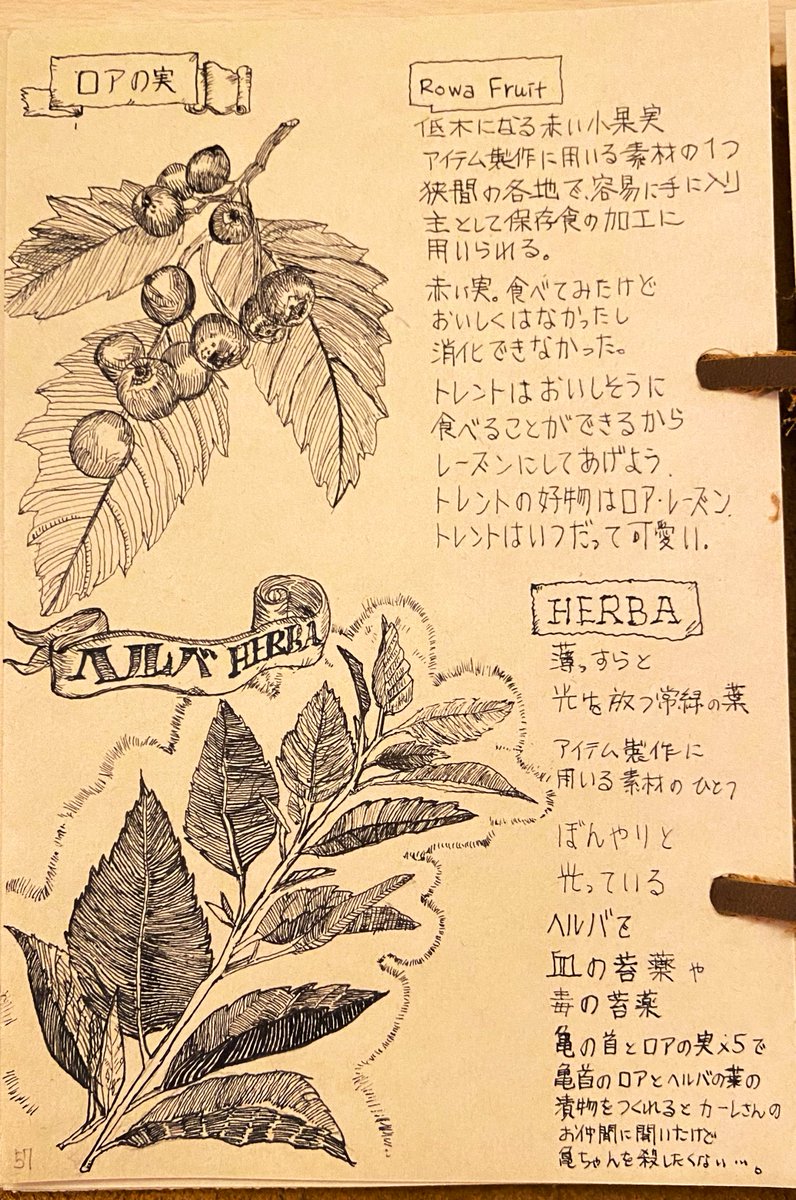 ロアの実
Rowa Fruit
低木になる赤い小果実
アイテム製作に用いる素材の1つ
狭間の各地で、容易に手に入り
主として保存食の加工に
用いられる。
赤い実。食べてみたけど
おいしくはなかったし
消化できなかった。
トレントはおいしそうに
食べることができるから
レーズンにしてあげよう.
トレントの好物はロア・レーズン.
トレントはいつだって可愛い.
ヘルバ HERBA
HERBA
薄っすらと
光を放つ常緑の葉
アイテム製作に
用いる素材のひとつ
ぼんやりと
光っている
ヘルバを
血の苔薬や
毒の苔薬
亀の首とロアの実x5で
亀首のロアとヘルバの葉の
漬物をつくれるとカーレさんの
お仲間に聞いたけど
亀ちゃんを殺したくない…。
57